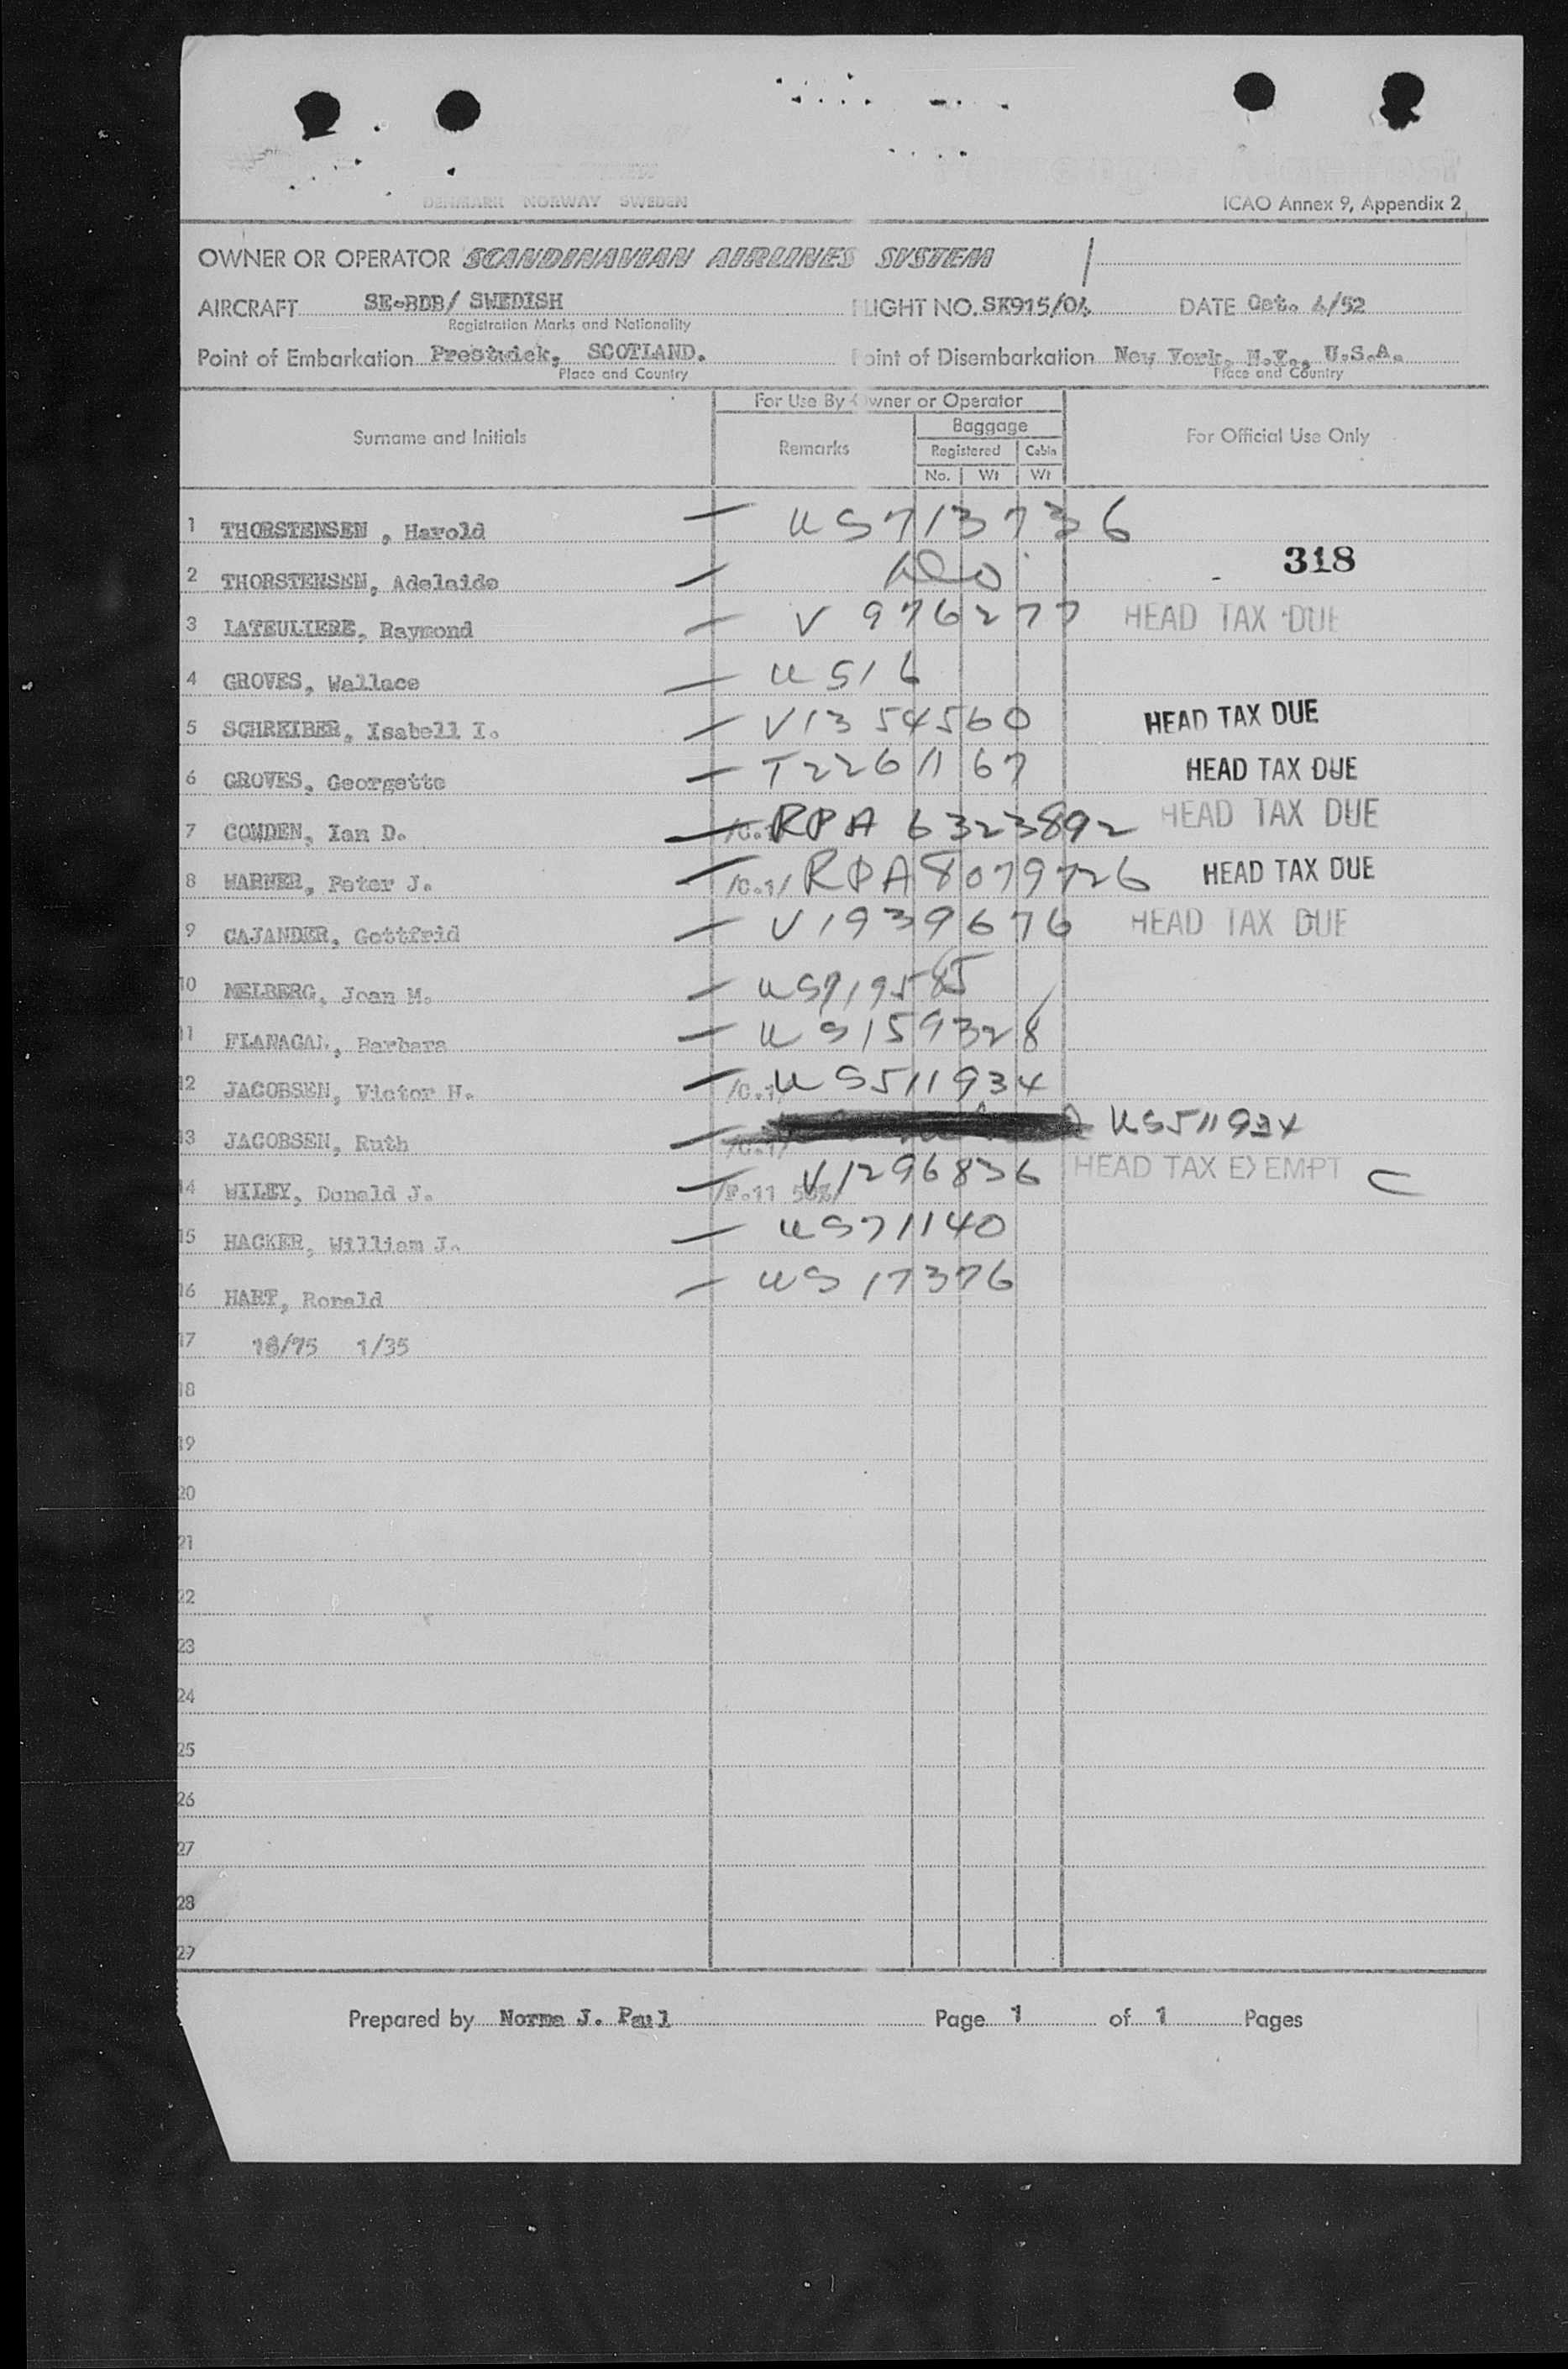 DENMARK NORWAY SWEDEN
ICAO Annex 9, Appendix 2
OWNER OR OPERATOR SCANDINAVIAN AIRLINES SYSTEM
AIRCRAFT SE-BDB/ SWEDISH FLIGHT NO. SK915/04 DATE Oct. 4/52
Registration Marks and Nationality
Point of Embarkation Prestwick, SCOTLAND. Point of Disembarkation New York, N.Y., U.S.A.
Place and Country Place and Country
For Use By Owner or Operator
Surname and Initials Remarks Baggage For Official Use Only
Registered Cabin
No. Wt Wt
1 THORSTENSEN , Harold — US713736
318
2 THORSTENSEN, Adelaide — do
3 LATEULIERE, Raymond — V 976277 HEAD TAX DUE
4 GROVES, Wallace — US16
5 SCHREIBER, Isabell I. — V1354560 HEAD TAX DUE
6 GROVES, Georgette — T2261167 HEAD TAX DUE
7 COWDEN, Ian D. — /C.1 RPA 6323892 HEAD TAX DUE
8 WARNER, Peter J. — /C.1/ RPA 8079726 HEAD TAX DUE
9 CAJANDER, Gottfrid — V1939676 HEAD TAX DUE
10 MELBERG, Joan M. — US719585
11 FLANAGAN, Barbara — US159328
12 JACOBSEN, Victor H. — /C.1/ US511934
13 JACOBSEN, Ruth — /C.1/ US511934
14 WILEY, Donald J. — /F.11 50%/ V1296836 HEAD TAX EXEMPT C
15 HACKER, William J. — US71140
16 HART, Ronald — US17376
17 18/75 1/35
18
19
20
21
22
23
24
25
26
27
28
29
Prepared by Norma J. Paul Page 1 of 1 Pages